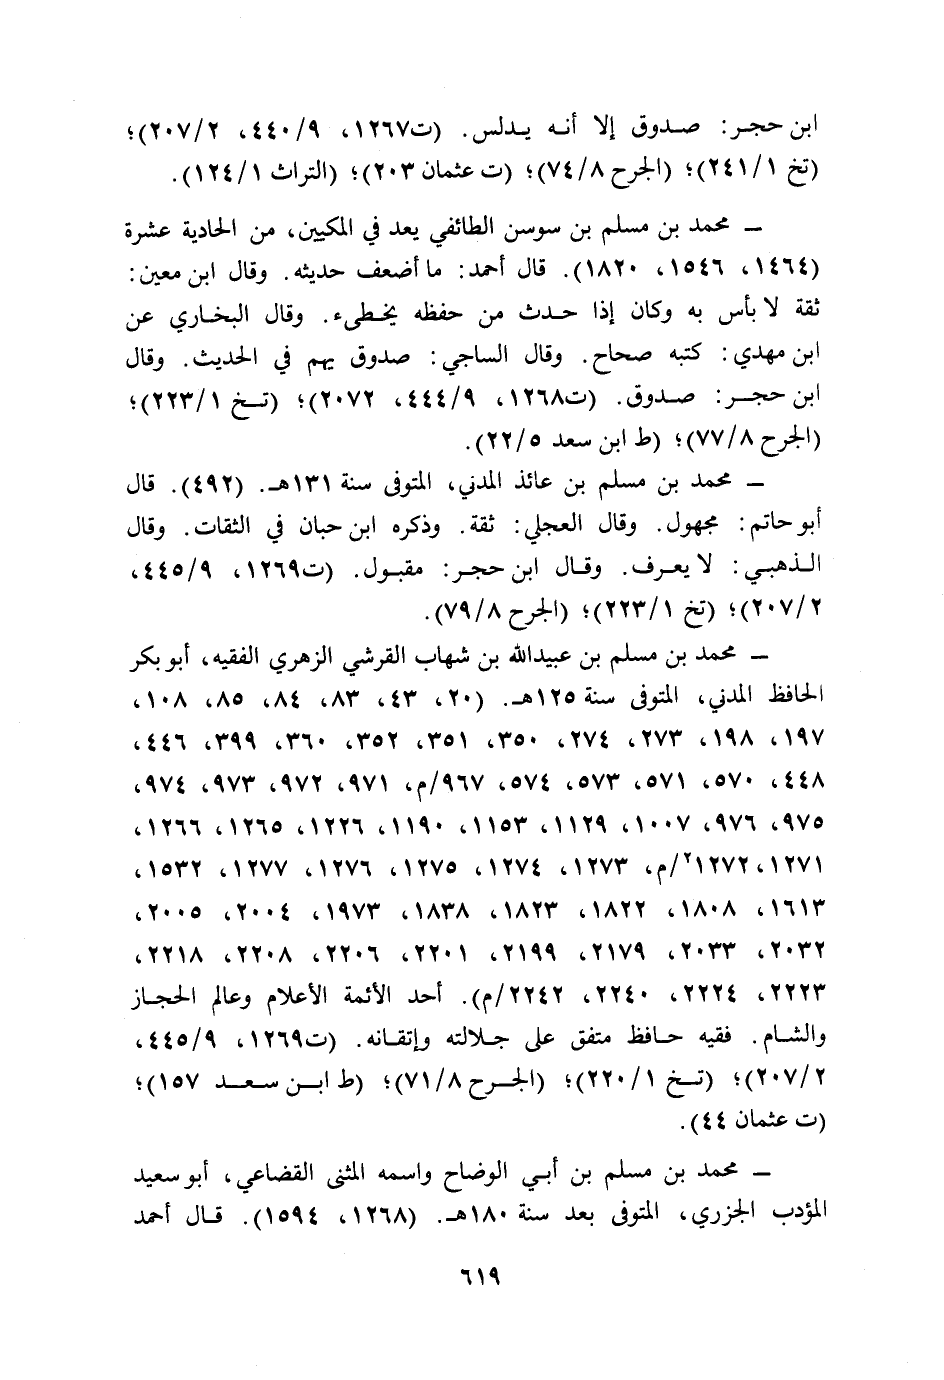 ابن حجر: صدوق إلا أنه يدلس. (ت١٢٦٧، ٤٤٠/٩، ٢٠٧/٢)؛
(تخ ٢٤١/١)؛ (الجرح ٧٤/٨)؛ (ت عثمان ٢٠٣)؛ (التراث ١٢٤/١).
– محمد بن مسلم بن سوسن الطائفي يعد في المكيين، من الحادية عشرة
(١٤٦٤، ١٥٤٦، ١٨٢٠). قال أحمد: ما أضعف حديثه. وقال ابن معين:
ثقة لا بأس به وكان إذا حدث من حفظه يخطىء. وقال البخاري عن
ابن مهدي: كتبه صحاح. وقال الساجي: صدوق يهم في الحديث. وقال
ابن حجر: صدوق. (ت١٢٦٨، ٤٤٤/٩، ٢٠٧٢)؛ (تخ ٢٢٣/١)؛
(الجرح ٧٧/٨)؛ (ط ابن سعد ٢٢/٥).
– محمد بن مسلم بن عائذ المدني، المتوفى سنة ١٣١هـ. (٤٩٢). قال
أبو حاتم: مجهول. وقال العجلي: ثقة. وذكره ابن حبان في الثقات. وقال
الذهبي: لا يعرف. وقال ابن حجر: مقبول. (ت١٢٦٩، ٤٤٥/٩،
٢٠٧/٢)؛ (تخ ٢٢٣/١)؛ (الجرح ٧٩/٨).
– محمد بن مسلم بن عبيدالله بن شهاب القرشي الزهري الفقيه، أبو بكر
الحافظ المدني، المتوفى سنة ١٢٥هـ. (٢٠، ٤٣، ٨٣، ٨٤، ٨٥، ١٠٨،
١٩٧، ١٩٨، ٢٧٣، ٢٧٤، ٣٥٠، ٣٥١، ٣٥٢، ٣٦٠، ٣٩٩، ٤٤٦،
٤٤٨، ٥٧٠، ٥٧١، ٥٧٣، ٥٧٤، ٩٦٧/م، ٩٧١، ٩٧٢، ٩٧٣، ٩٧٤،
٩٧٥، ٩٧٦، ١٠٠٧، ١١٢٩، ١١٥٣، ١١٩٠، ١٢٢٦، ١٢٦٥، ١٢٦٦،
١٢٧١، ١٢٧٢٢/م، ١٢٧٣، ١٢٧٤، ١٢٧٥، ١٢٧٦، ١٢٧٧، ١٥٣٢،
١٦١٣، ١٨٠٨، ١٨٢٢، ١٨٢٣، ١٨٣٨، ١٩٧٣، ٢٠٠٤، ٢٠٠٥،
٢٠٣٢، ٢٠٣٣، ٢١٧٩، ٢١٩٩، ٢٢٠١، ٢٢٠٦، ٢٢٠٨، ٢٢١٨،
٢٢٢٣، ٢٢٢٤، ٢٢٤٠، ٢٢٤٢/م). أحد الأئمة الأعلام وعالم الحجاز
والشام. فقيه حافظ متفق على جلالته وإتقانه. (ت١٢٦٩، ٤٤٥/٩،
٢٠٧/٢)؛ (تخ ٢٢٠/١)؛ (الجرح ٧١/٨)؛ (ط ابن سعد ١٥٧)؛
(ت عثمان ٤٤).
– محمد بن مسلم بن أبي الوضاح واسمه المثنى القضاعي، أبو سعيد
المؤدب الجزري، المتوفى بعد سنة ١٨٠هـ. (١٢٦٨، ١٥٩٤). قال أحمد
٦١٩